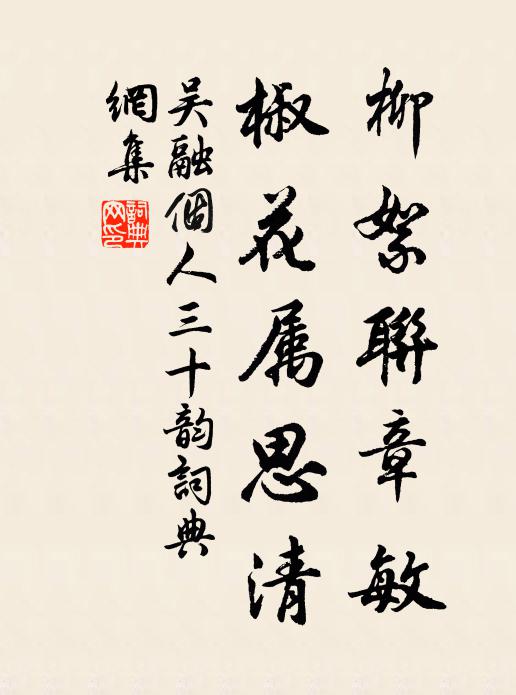 柳絮聯章敏
椒花属思清
吴融個人三十韵詞典
網集
詞典
网印